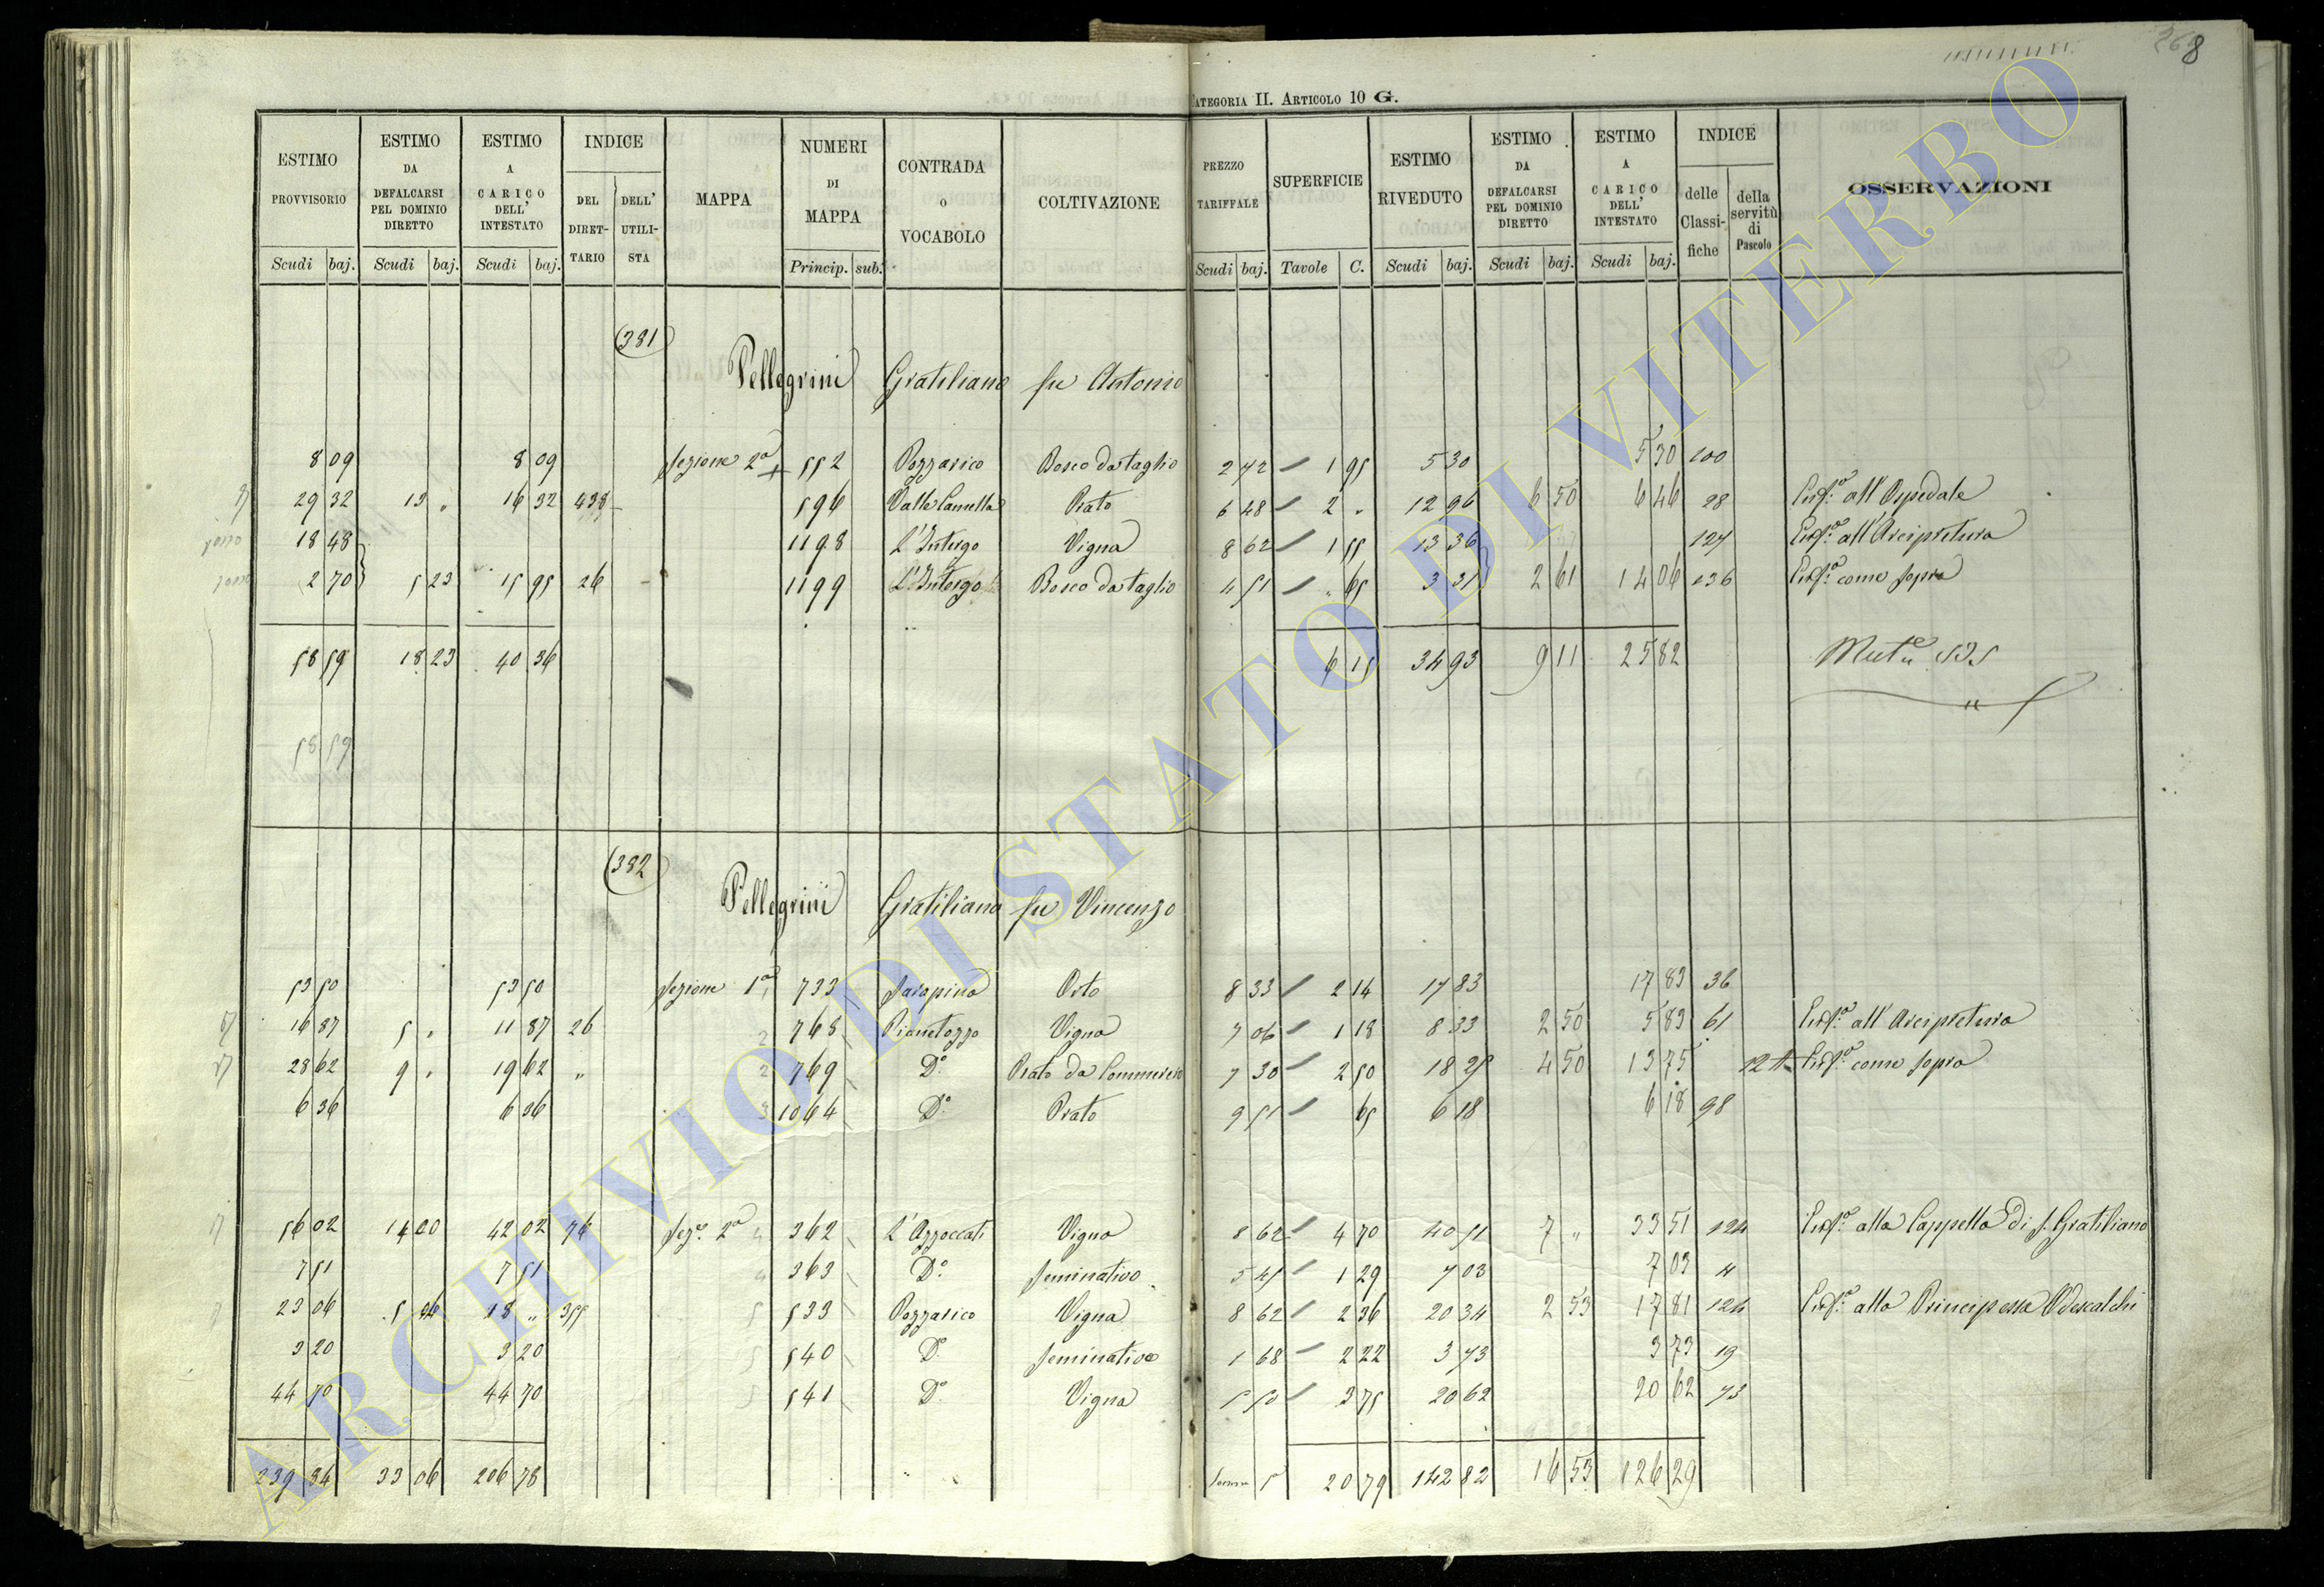 268
CATEGORIA II. ARTICOLO 10 G.
ESTIMO PROVVISORIO Scudi baj. ESTIMO DA DEFALCARSI PEL DOMINIO DIRETTO Scudi baj. ESTIMO A CARICO DELL' INTESTATO Scudi baj. INDICE DEL DIRET-TARIO DELL' UTILI-STA MAPPA NUMERI DI MAPPA Princip. sub. CONTRADA O VOCABOLO COLTIVAZIONE PREZZO TARIFFALE Scudi baj. SUPERFICIE Tavole C. ESTIMO RIVEDUTO Scudi baj. ESTIMO DA DEFALCARSI PEL DOMINIO DIRETTO Scudi baj. ESTIMO A CARICO DELL' INTESTATO Scudi baj. INDICE delle Classi-fiche della servitù di Pascolo OSSERVAZIONI
381
Pellegrini Gratiliano fu Antonio
8 09 8 09 Sezione 2a 552 Pozzarico Bosco da taglio 2 72 1 95 5 30 5 30 100
29 32 13 „ 16 32 438 596 Valle Cannella Prato 6 48 2 „ 12 96 6 50 6 46 28 all'Ospedale
18 48 1198 L'Intergo Vigna 8 62 1 55 13 36 124 all'Arcipretura
2 70 5 23 15 95 26 1199 L'Intergo Bosco da taglio 4 51 „ 65 3 31 2 61 14 06 136 come sopra
58 59 18 23 40 36 6 15 34 93 9 11 25 82
58 59
382
Pellegrini Gratiliano fu Vincenzo
53 50 53 50 Sezione 1a 733 Sarapina Orto 8 33 2 14 17 83 17 83 36
16 87 5 „ 11 87 26 2 768 Pianetozzo Vigna 7 06 1 18 8 33 2 50 5 83 61 all'Arcipretura
28 62 9 „ 19 62 „ 2 769 Do Prato da Commercio 7 30 2 50 18 25 4 50 13 75 12 come sopra
6 36 6 36 3 1064 Do Prato 9 51 65 6 18 6 18 98
56 02 14 00 42 02 76 Sezne 2a 4 362 L'Azzoccati Vigna 8 62 4 70 40 51 7 „ 33 51 124 alla Cappella di S. Gratiliano
7 51 7 51 4 363 Do Seminativo 5 45 1 29 7 03 7 03 4
23 06 5 06 18 „ 355 5 533 Pozzarico Vigna 8 62 2 36 20 34 2 53 17 81 124 alla Principessa Odescalchi
3 20 3 20 5 540 Do Seminativo 1 68 2 22 3 73 3 73 19
44 70 44 70 5 541 Do Vigna 5 50 3 75 20 62 20 62 73
239 84 33 06 206 78 20 79 142 82 16 53 126 29
ARCHIVIO DI STATO DI VITERBO